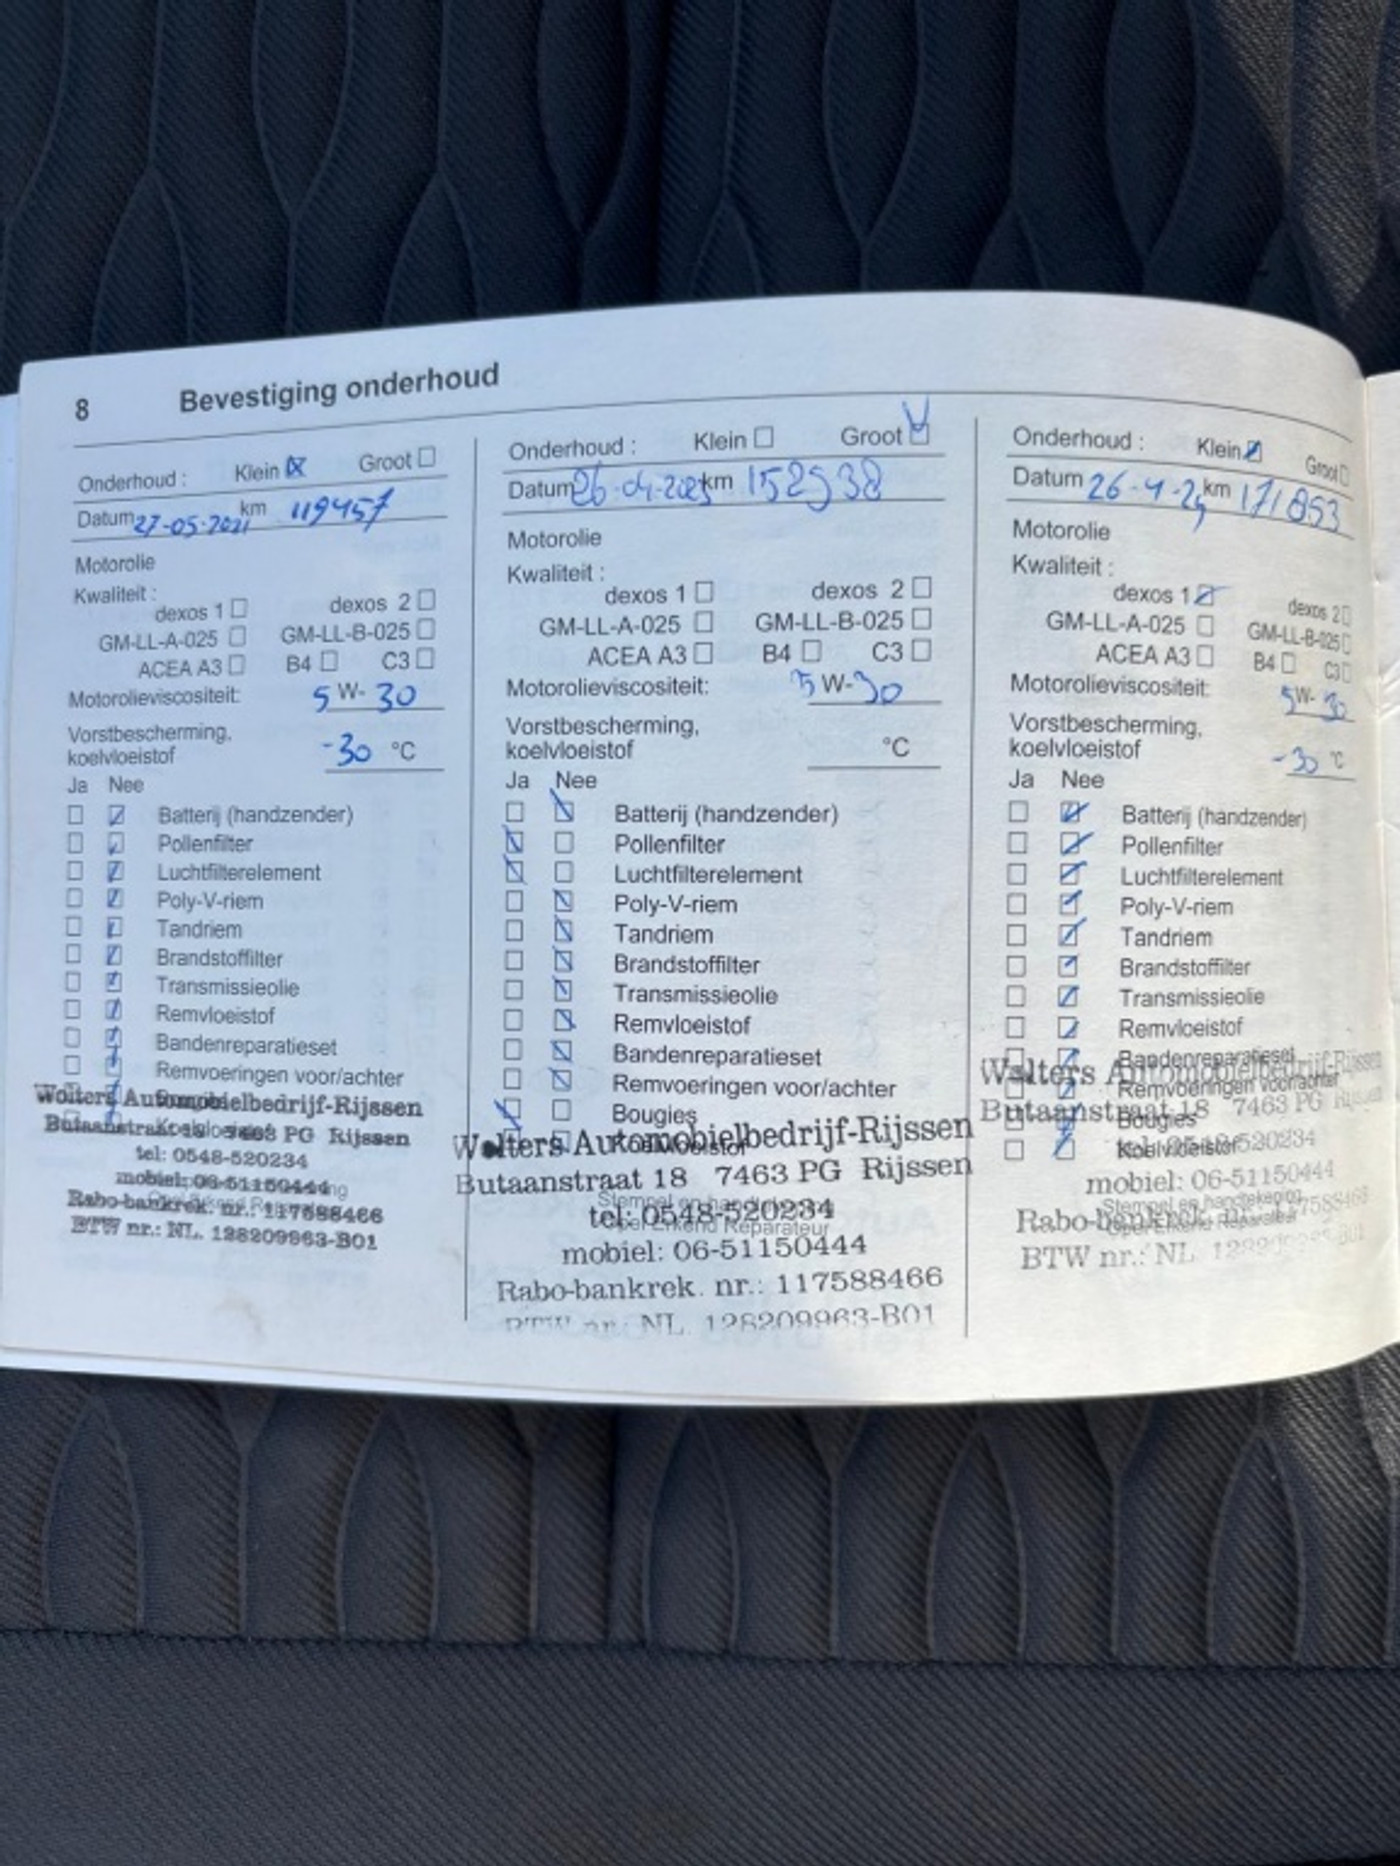 8 Bevestiging onderhoud
Onderhoud : Klein ☒ Groot ☐
Datum 27-05-2021 km 119457
Motorolie
Kwaliteit :
dexos 1 ☐ dexos 2 ☐
GM-LL-A-025 ☐ GM-LL-B-025 ☐
ACEA A3 ☐ B4 ☐ C3 ☐
Motorolieviscositeit: 5 W- 30
Vorstbescherming,
koelvloeistof -30 °C
Ja Nee
☐ ☑ Batterij (handzender)
☐ ☑ Pollenfilter
☐ ☑ Luchtfilterelement
☐ ☑ Poly-V-riem
☐ ☑ Tandriem
☐ ☑ Brandstoffilter
☐ ☑ Transmissieolie
☐ ☑ Remvloeistof
☐ ☑ Bandenreparatieset
☐ ☑ Remvoeringen voor/achter
Wolters Automobielbedrijf-Rijssen
Butaanstraat 18 7463 PG Rijssen
tel: 0548-520234
mobiel: 06-51150444
Rabo-bankrek. nr.: 117588466
BTW nr.: NL. 128209963-B01
Onderhoud : Klein ☐ Groot ☑
Datum 26-04-2023 km 152938
Motorolie
Kwaliteit :
dexos 1 ☐ dexos 2 ☐
GM-LL-A-025 ☐ GM-LL-B-025 ☐
ACEA A3 ☐ B4 ☐ C3 ☐
Motorolieviscositeit: 5 W- 30
Vorstbescherming,
koelvloeistof °C
Ja Nee
☐ ☑ Batterij (handzender)
☑ ☐ Pollenfilter
☑ ☐ Luchtfilterelement
☐ ☑ Poly-V-riem
☐ ☑ Tandriem
☐ ☑ Brandstoffilter
☐ ☑ Transmissieolie
☐ ☑ Remvloeistof
☐ ☑ Bandenreparatieset
☐ ☑ Remvoeringen voor/achter
☑ ☐ Bougies
Koelvloeistof
Wolters Automobielbedrijf-Rijssen
Butaanstraat 18 7463 PG Rijssen
Stempel en handtekening
tel: 0548-520234
Opel Erkend Reparateur
mobiel: 06-51150444
Rabo-bankrek. nr.: 117588466
BTW nr.: NL. 128209963-B01
Onderhoud : Klein ☑ Groot ☐
Datum 26-4-25 km 171853
Motorolie
Kwaliteit :
dexos 1 ☑ dexos 2 ☐
GM-LL-A-025 ☐ GM-LL-B-025 ☐
ACEA A3 ☐ B4 ☐ C3 ☐
Motorolieviscositeit: 5 W- 30
Vorstbescherming,
koelvloeistof -30 °C
Ja Nee
☐ ☑ Batterij (handzender)
☐ ☑ Pollenfilter
☐ ☑ Luchtfilterelement
☐ ☑ Poly-V-riem
☐ ☑ Tandriem
☐ ☑ Brandstoffilter
☐ ☑ Transmissieolie
☐ ☑ Remvloeistof
☐ ☑ Bandenreparatieset
Wolters Automobielbedrijf-Rijssen
☐ ☑ Remvoeringen voor/achter
Butaanstraat 18 7463 PG Rijssen
☐ ☑ Bougies
tel: 0548-520234
☐ ☑ Koelvloeistof
mobiel: 06-51150444
Stempel en handtekening
Rabo-bankrek. nr.: 117588466
Opel Erkend Reparateur
BTW nr.: NL